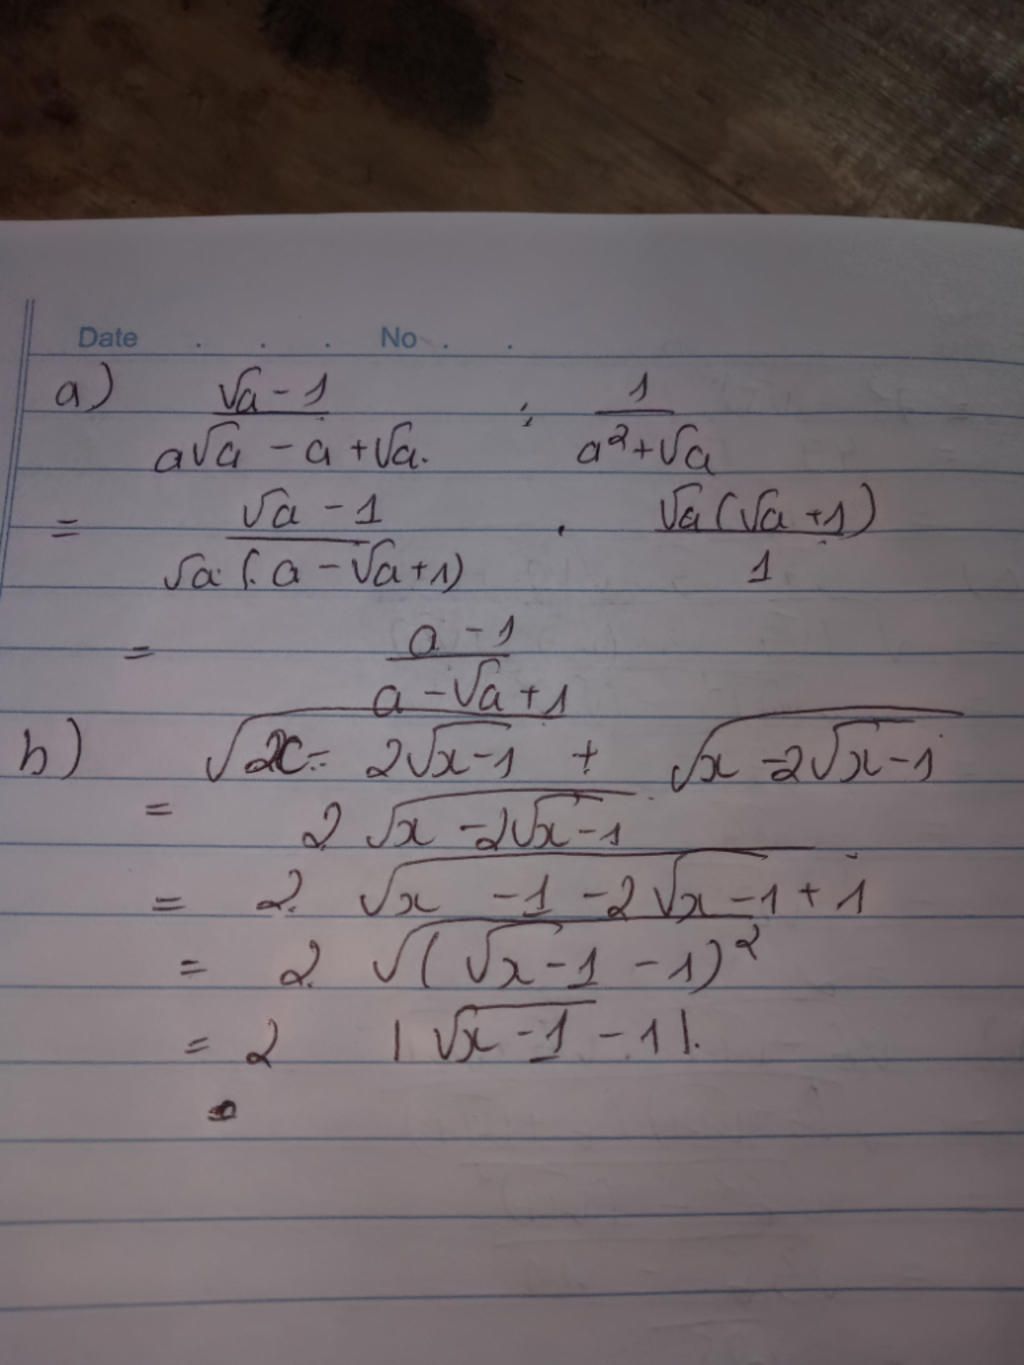 Date . . . No . .
a) (√a - 1)/(a√a - a + √a.) : 1/(a² + √a)
= (√a - 1)/(√a (a - √a + 1)) . (√a (√a + 1))/1
= (a - 1)/(a - √a + 1)
b) √(x - 2√(x - 1)) + √(x - 2√(x - 1))
= 2 √(x - 2√(x - 1))
= 2. √(x - 1 - 2√(x - 1) + 1)
= 2. √((√(x - 1) - 1)²)
= 2 |√(x - 1) - 1|.